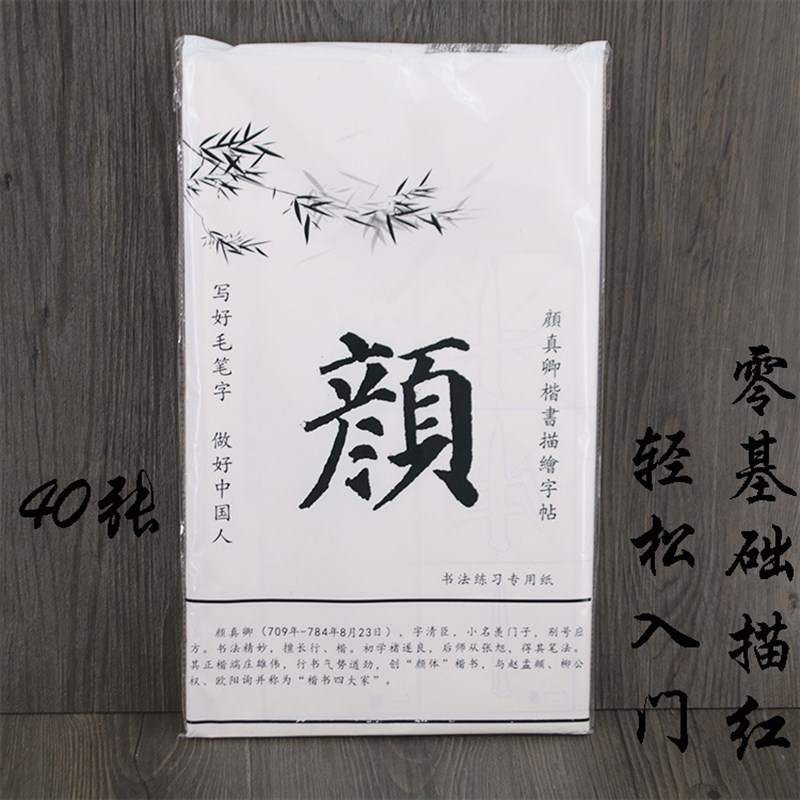 写好毛笔字 做好中国人
顔
顔真卿楷書描繪字帖
书法练习专用纸
颜真卿（709年-784年8月23日），字清臣，小名羡门子，别号应
方。书法精妙，擅长行、楷。初学褚遂良，后师从张旭，得其笔法。
其正楷端庄雄伟，行书气势遒劲，创“颜体”楷书，与赵孟頫、柳公
权、欧阳询并称为“楷书四大家”。
40张
零基础描红
轻松入门